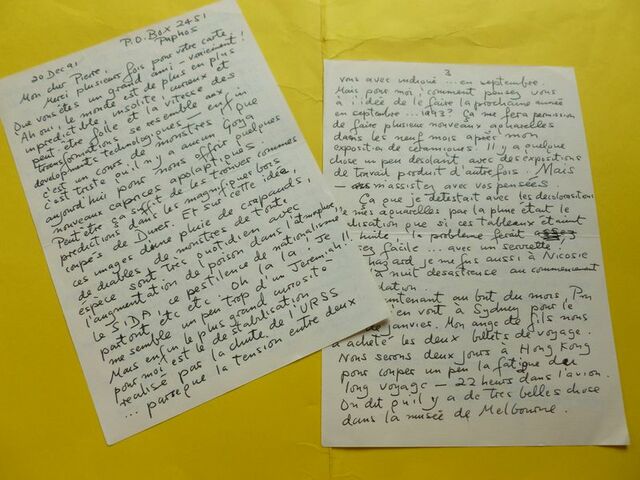 P.O. Box 2451
20 Dec 91 Paphos
Mon cher Pierre,
Merci plusieur fois pour votre carte
Que vous êtes un grand ami - vraiement!
Ah oui, le monde est de plus en plus
unpredictble, insolite, curaux et
peut être folle et la vitesse des
transformations se resemble aux
developments technologiques - enfin
c'est un cours de monstres! que
c'est triste qu'il n'y a aucun Goya
aujourd'hui pour nous offrir quelques
nouveaux caprices apolaptiques.
Peut être ça suffit de les trouver commes
predictions dans les magnifiques bois
coupés de Durer. Et sur cette idée,
ces images d'une pluie de crapauds,
de diables, de monstres de toute
espece sont très quotidien avec
l'augmentation de poison dans l'atmosphere,
le SIDA, ce pestilence de nationalisme
partout etc etc. Oh la la, je
me semble un peu trop d'un Jeremiah!!
Mais enfin le plus grand curiosité
pour moi est le destabilisation
realisé pas la chute de l'URSS
... parseque la tension entre deux
3
vous avec indiqué ... en septembre.
Mais pour moi, comment pensez vous
à l'idée de le faire la prochaine année
en septembre ... 1993? Ça me fera permission
de faire plusieur nouveaux aquarelles
dans les neuf mois aprés mon
exposition de céramiques! Il y a quelque
chose un peu desolant avec des expositions
de travail produit d'autrefois. Mais
- m'assistez avec vos pensées.
Ça que je detestait avec les decolorations
mes aquarelles par la pluie était le
disation que si ces tableaux étaint
huile - le problème ferait
facile .. avec un serviette,
hazard je me fus aussi à Nicosie
la nuit desastreuse au commencement
dation.
Maintenant au bout du mois,
en vont à Sydney pour le
de janvier. Mon ange de fils nous
a acheté les deux billets de voyage.
Nous serons deux jours à Hong Kong
pour couper un peu la fatigue du
long voyage - 22 heurs dans l'avion.
On dit qu'il y a de tres belles chose
dans la musée de Melbourne.